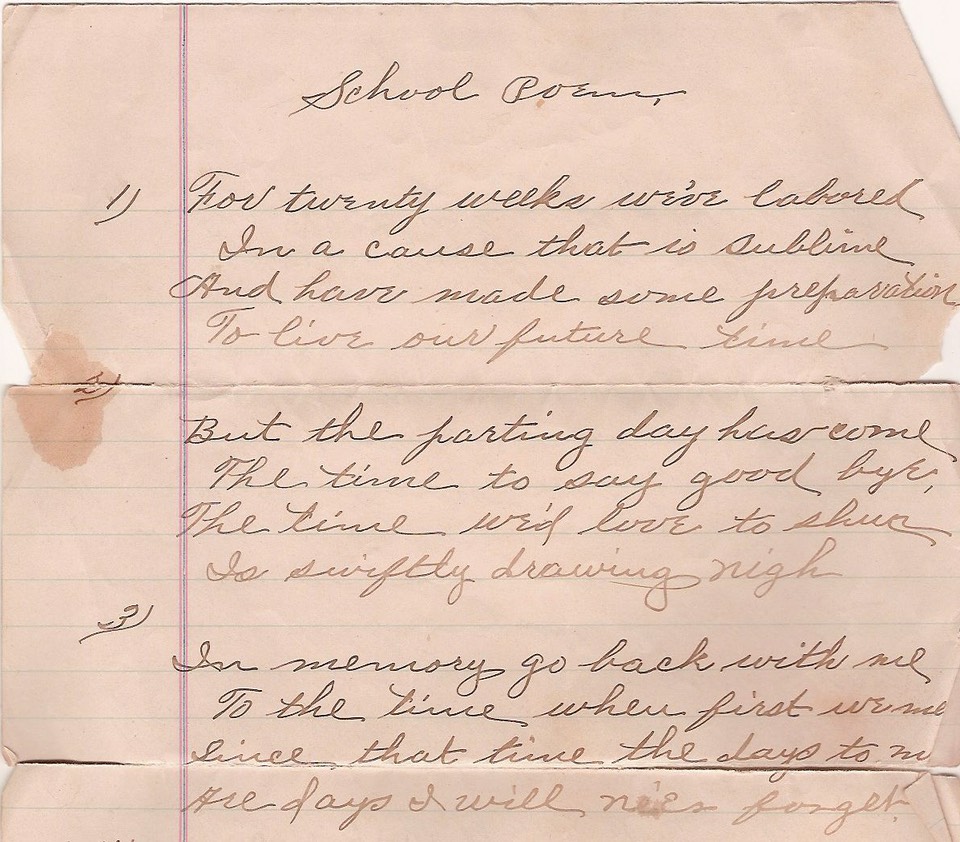 School Poem.
1) For twenty weeks we've labored
In a cause that is sublime
And have made some preparation
To live our future time
2)
But the parting day has come
The time to say good bye,
The time we'd love to shun
Is swiftly drawing nigh
3)
In memory go back with me
To the time when first we me
Since that time the days to m
Are days I will ne'er forget.